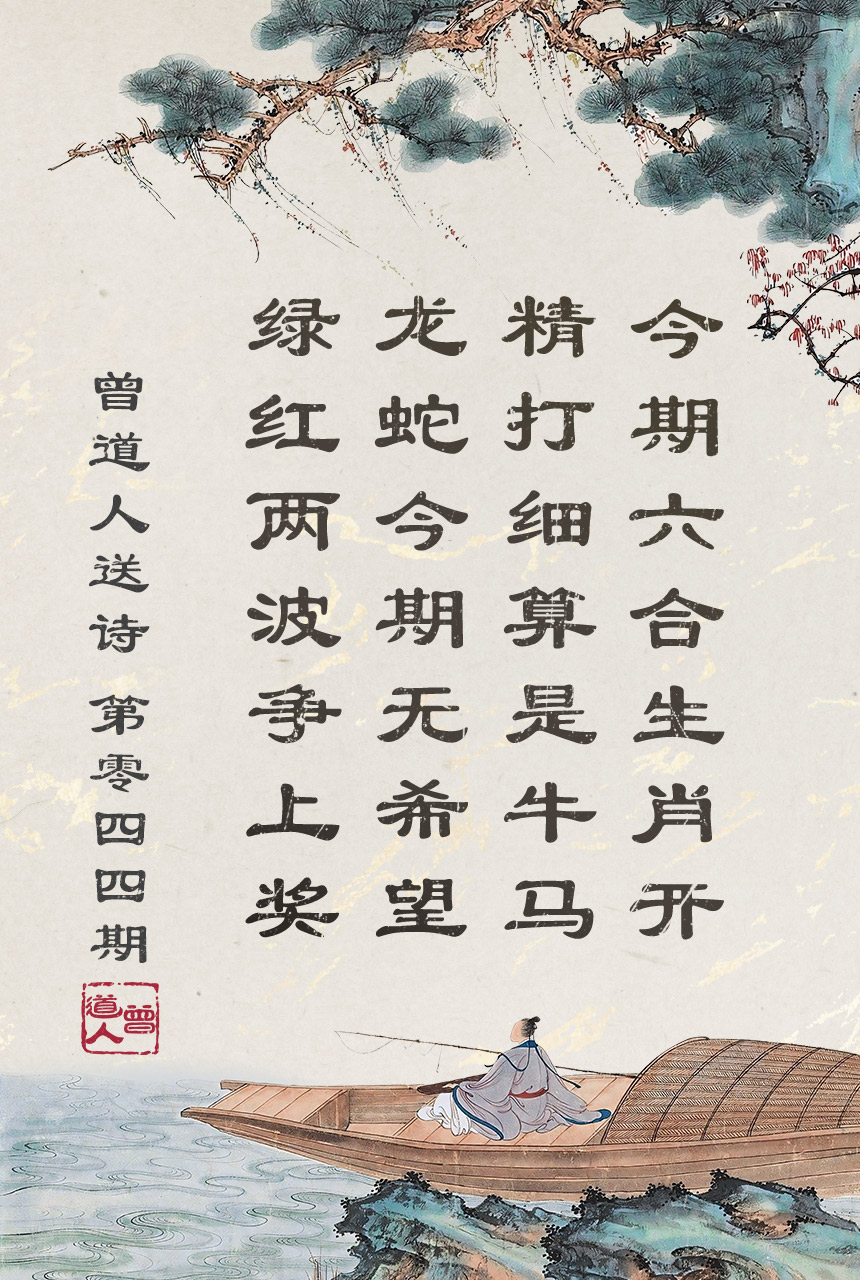 今期六合生肖开
精打细算是牛马
龙蛇今期无希望
绿红两波争上奖
曾道人送诗 第零四四期
曾道人